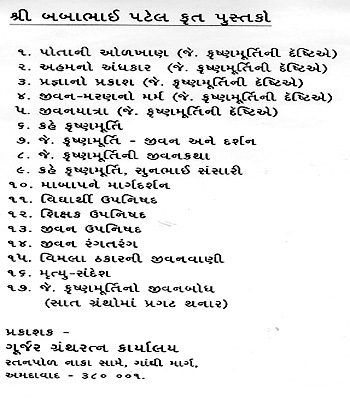 શ્રી બબાભાઈ પટેલ કૃત પુસ્તકો
૧. પોતાની ઓળખાણ (જે. કૃષ્ણમૂર્તિની દૃષ્ટિએ)
૨. અહમનો અંધકાર (જે. કૃષ્ણમૂર્તિની દૃષ્ટિએ)
૩. પ્રજ્ઞાનો પ્રકાશ (જે. કૃષ્ણમૂર્તિની દૃષ્ટિએ)
૪. જીવન-મરણનો મર્મ (જે. કૃષ્ણમૂર્તિની દૃષ્ટિએ)
૫. જીવનયાત્રા (જે. કૃષ્ણમૂર્તિની દૃષ્ટિએ)
૬. કહે કૃષ્ણમૂર્તિ
૭. જે. કૃષ્ણમૂર્તિ - જીવન અને દર્શન
૮. જે. કૃષ્ણમૂર્તિની જીવનકથા
૯. કહે કૃષ્ણમૂર્તિ, સુનભાઈ સંસારી
૧૦. માબાપને માર્ગદર્શન
૧૧. વિદ્યાર્થી ઉપનિષદ
૧૨. શિક્ષક ઉપનિષદ
૧૩. જીવન ઉપનિષદ
૧૪. જીવન રંગતરંગ
૧૫. વિમલા ઠકારની જીવનવાણી
૧૬. મૃત્યુ-સંદેશ
૧૭. જે. કૃષ્ણમૂર્તિનો જીવનબોધ
(સાત ગ્રંથોમાં પ્રગટ થનાર)
પ્રકાશક -
ગૂર્જર ગ્રંથરત્ન કાર્યાલય
રતનપોળ નાકા સામે, ગાંધી માર્ગ,
અમદાવાદ - ૩૮૦ ૦૦૧.